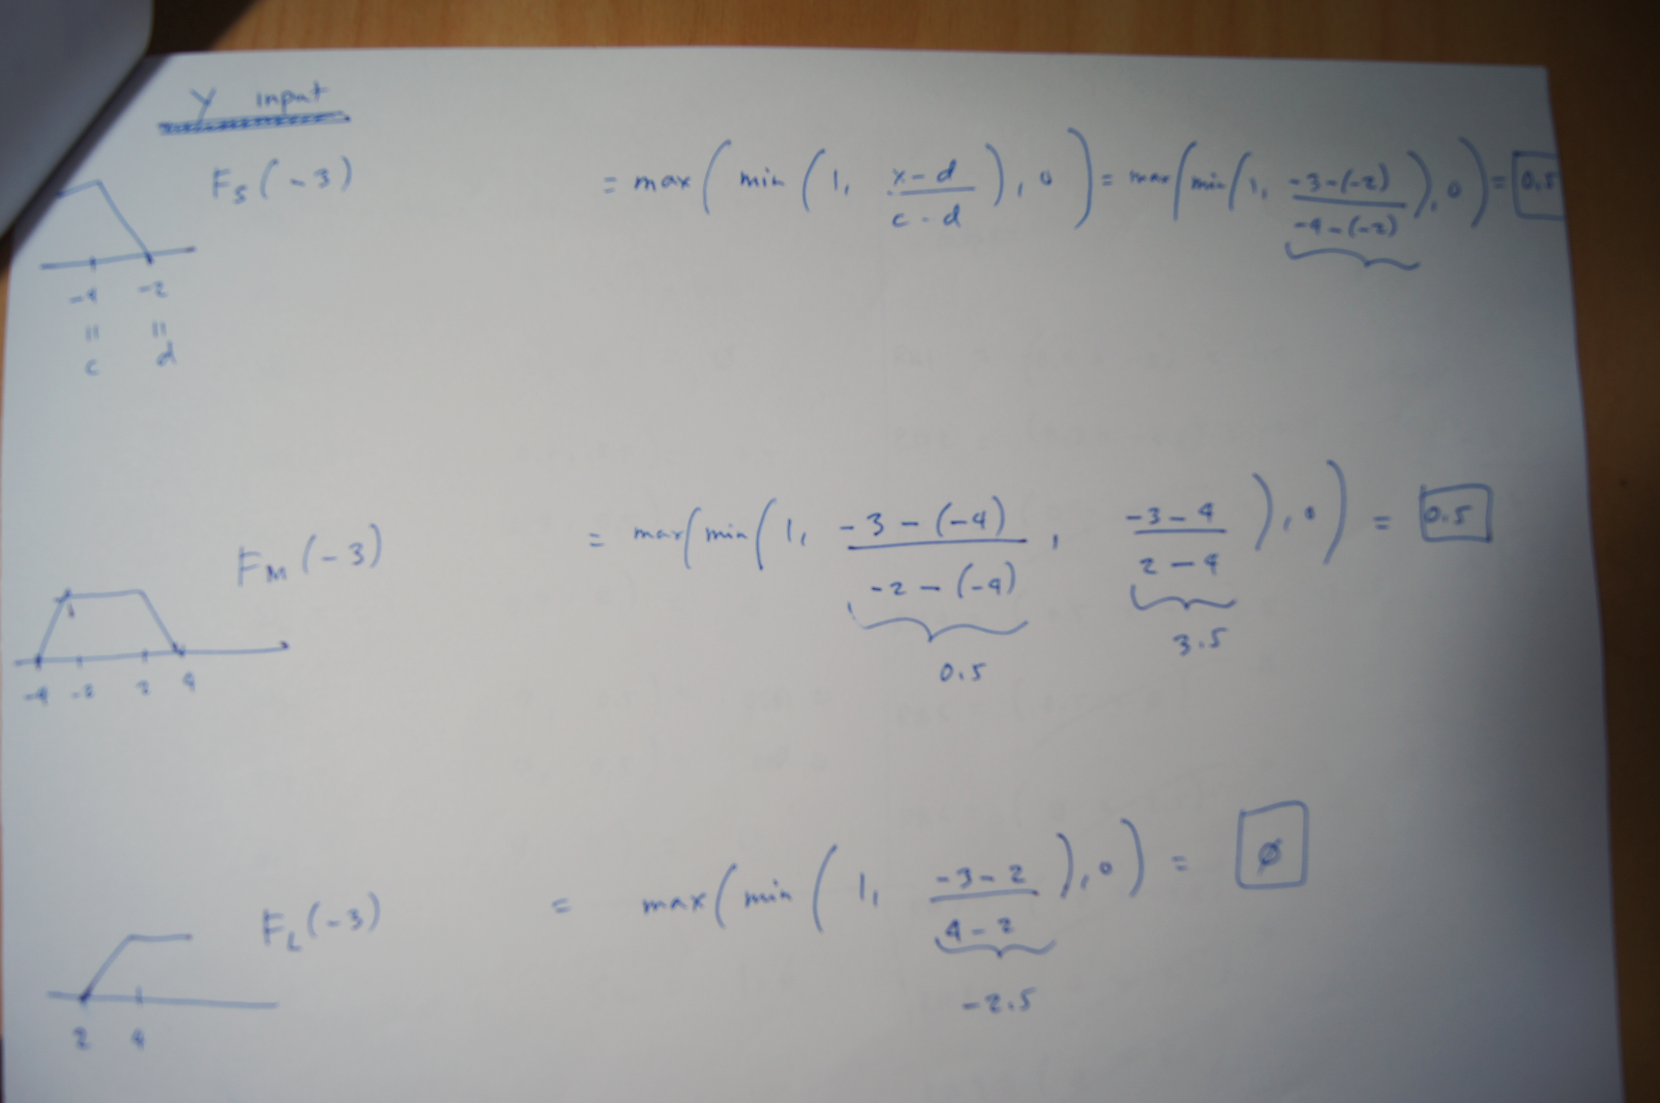 Y input
F_S(-3) = max(min(1, (x-d)/(c-d)), 0) = max(min(1, (-3-(-2))/(-4-(-2))), 0) = 0.5
-4 -2
= =
c d
F_M(-3) = max(min(1, (-3-(-4))/(-2-(-4)), (-3-4)/(2-4)), 0) = 0.5
1
0.5 3.5
-4 -2 2 4
F_L(-3) = max(min(1, (-3-2)/(4-2)), 0) = ∅
-2.5
2 4